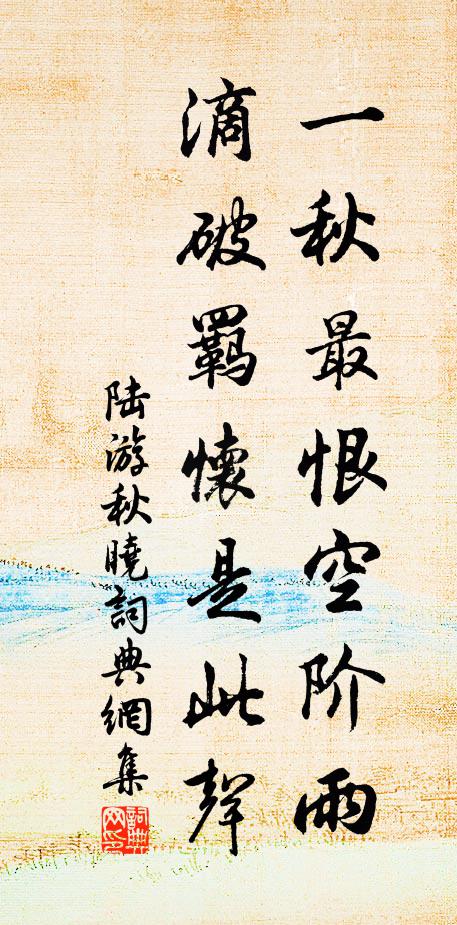 一秋最恨空阶雨
滴破羈懷是此聲
陆游秋曉詞典網集
詞典网印